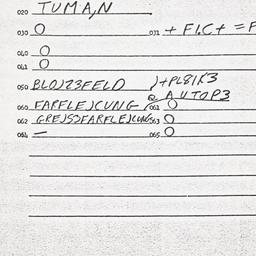 020 TUMA,N
030 O 031 + FI.C+ = F
040 O
041 O
050 BLO)23FELD )+PL81K3
@ AUTOP3
060 FARFLE)CUNG 061 O
062 GRE)S3FARFLE)CUNG 063 O
064 — 065 O